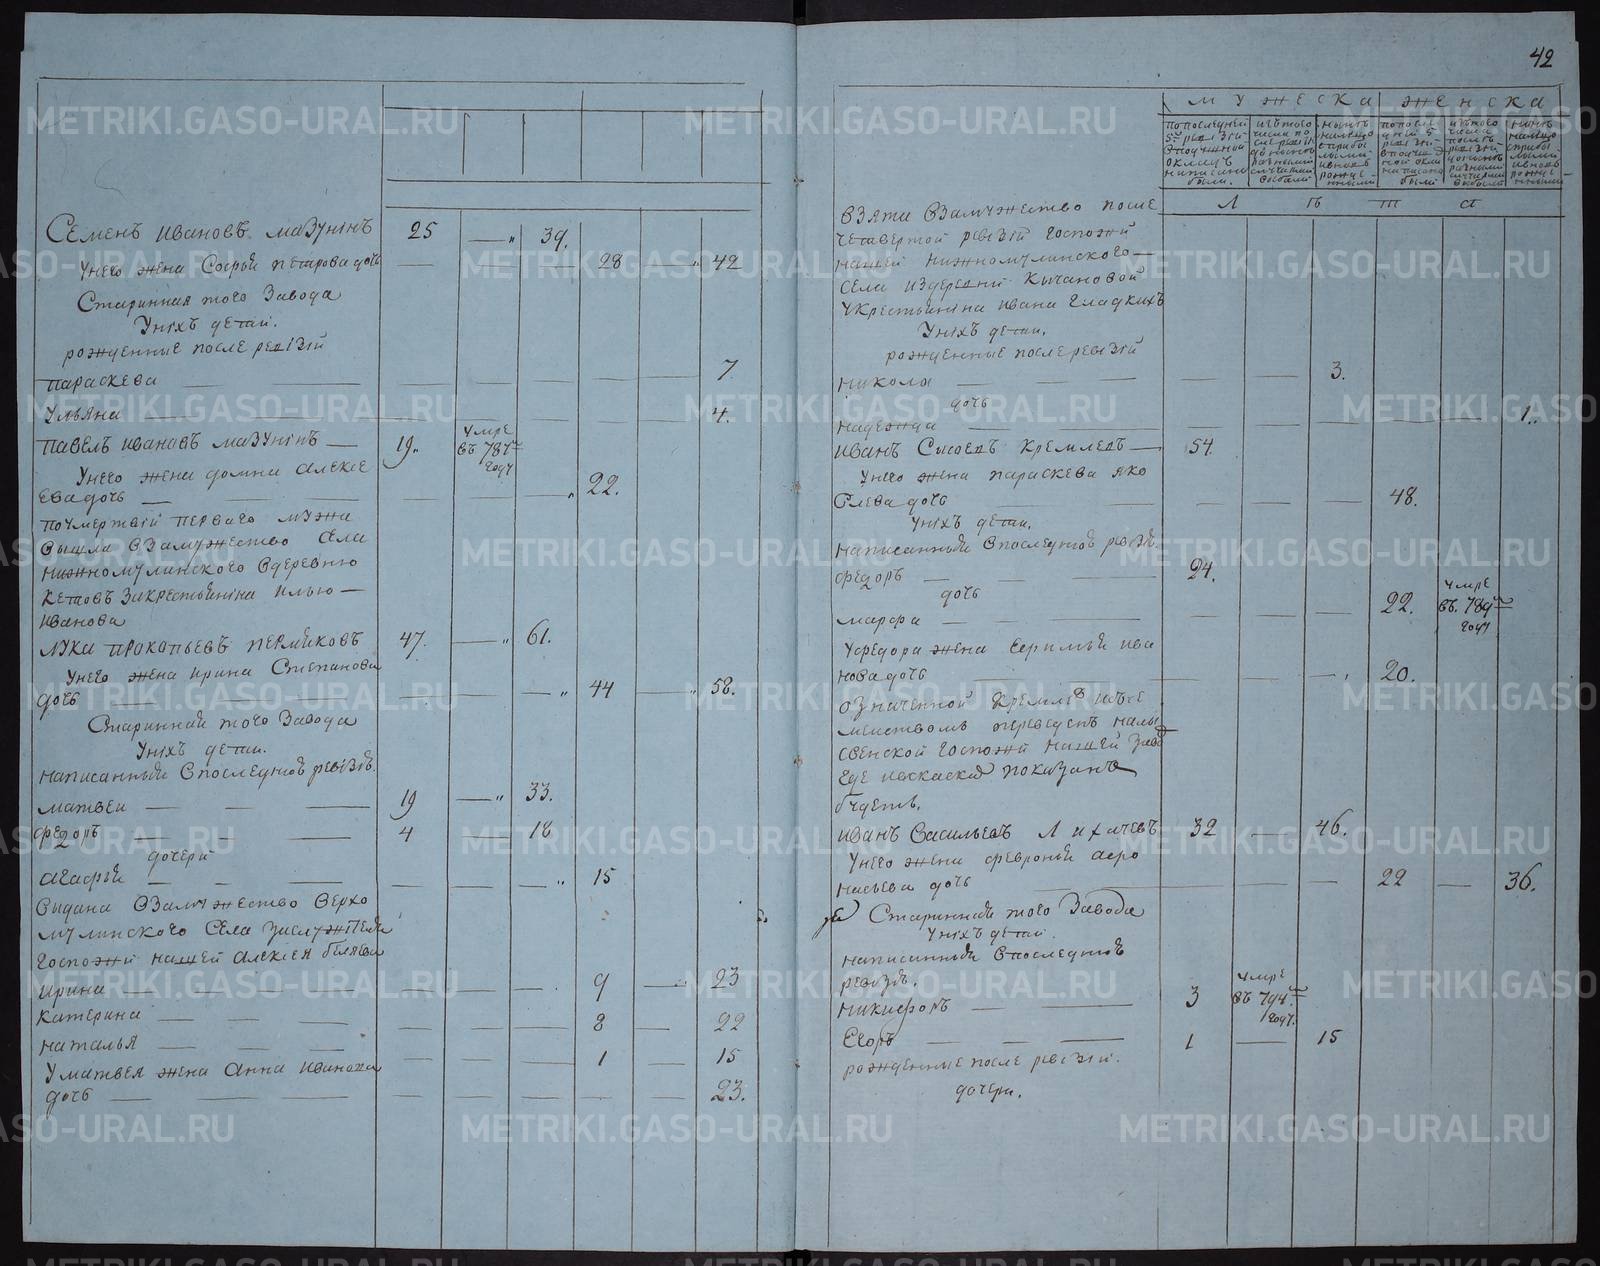 Семенъ ивановъ мазунінъ 25 — „ 39.
унего жена Софья петрова дочь — — — 28 — „ 42
Старинная того завода
Уніхъ детей.
рожденные после ревізій
параскева — — — — — — 7
Ульяна — — — — — — 4.
павелъ ивановъ мазунінъ — 19. умре въ 787м году
Унего жена домна алексе
ева дочь — — — „ 22.
поумертвій перваго мужа
вышла взамужество села
нижномулинского вдеревню
кетовъ закрестьянина илью —
иванова
лука прокопьевъ пермяковъ 47. — „ 61.
Унего жена ирина Степанова
дочь — — — „ 44 — „ 58.
Старинная того завода
Уніхъ детей.
написанныя впоследнюю ревізію
матвеи — — — 19 — „ 33.
федоръ — — 4 — 18
дочери
агафья — — — — „ 15
выдана взамужество верхо
мулинского села заслужителя
госпожи нашей алексея беляева
ирина — — — — 9 — 23
катерина — — — — 8 — 22
наталья — — — — 1 — 15
Уматвея жена анна иванова
дочь — — — — — — 23.
42
мужеска женска
попоследней 5й ревізій в подушной окладъ написано были.
изътого числа после ревізій доныне разными случаями выбыли
ныне налицо с прибылыми и вновь рожденными
попоследней 5 ревізій в подушной окладъ написано были
изътого числа после ревізій доныне разными случаями выбыли
ныне налицо с прибылыми и вновь рожденными
Л ѣ т а
взята взамужество после
четвертой ревізій госпожи
нашей нижномулинского —
села издеревни Кычановой
укрестьянина ивана гладкихъ
Уніхъ детей.
рожденные после ревізій
никола — — — — — 3.
дочь
надежда — — — — — — 1.
иванъ Сысоевъ кремлевъ — 54.
Унего жена параскева яко
влева дочь — — — — 48.
уніхъ детей.
написанныя впоследнюю ревізію
федоръ — — — 24.
дочь
марфа — — — — — 22. умре въ 789м году
Уфедора жена ефимья ива
нова дочь — — — 20.
означенной кремлевъ се
меиствомъ переведенъ налы
свенской госпожи нашей завод
где ивсказке показанъ
будетъ.
иванъ васильевъ Лихачевъ 32 — 46.
Унего жена февронья афо
насьева дочь — — — — 22 — 36.
Старинная того завода
Уніхъ детей.
написанныя впоследнюю
ревізію.
никифоръ — — 3 умре въ 794м году.
Егоръ — — — 1 — 15
рожденные после ревізій.
дочери.
METRIKI.GASO-URAL.RU